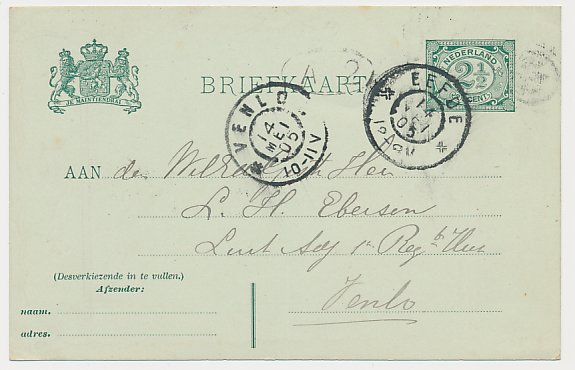 JE MAINTIENDRAI
BRIEFKAART
NEDERLAND
2½
CENT
VENLO
14
MEI
05
10-11 V
EEFDE
14
05
AAN den Heer
L. H. Eberson
1e Reg.
Venlo
(Desverkiezende in te vullen.)
Afzender:
naam.
adres.